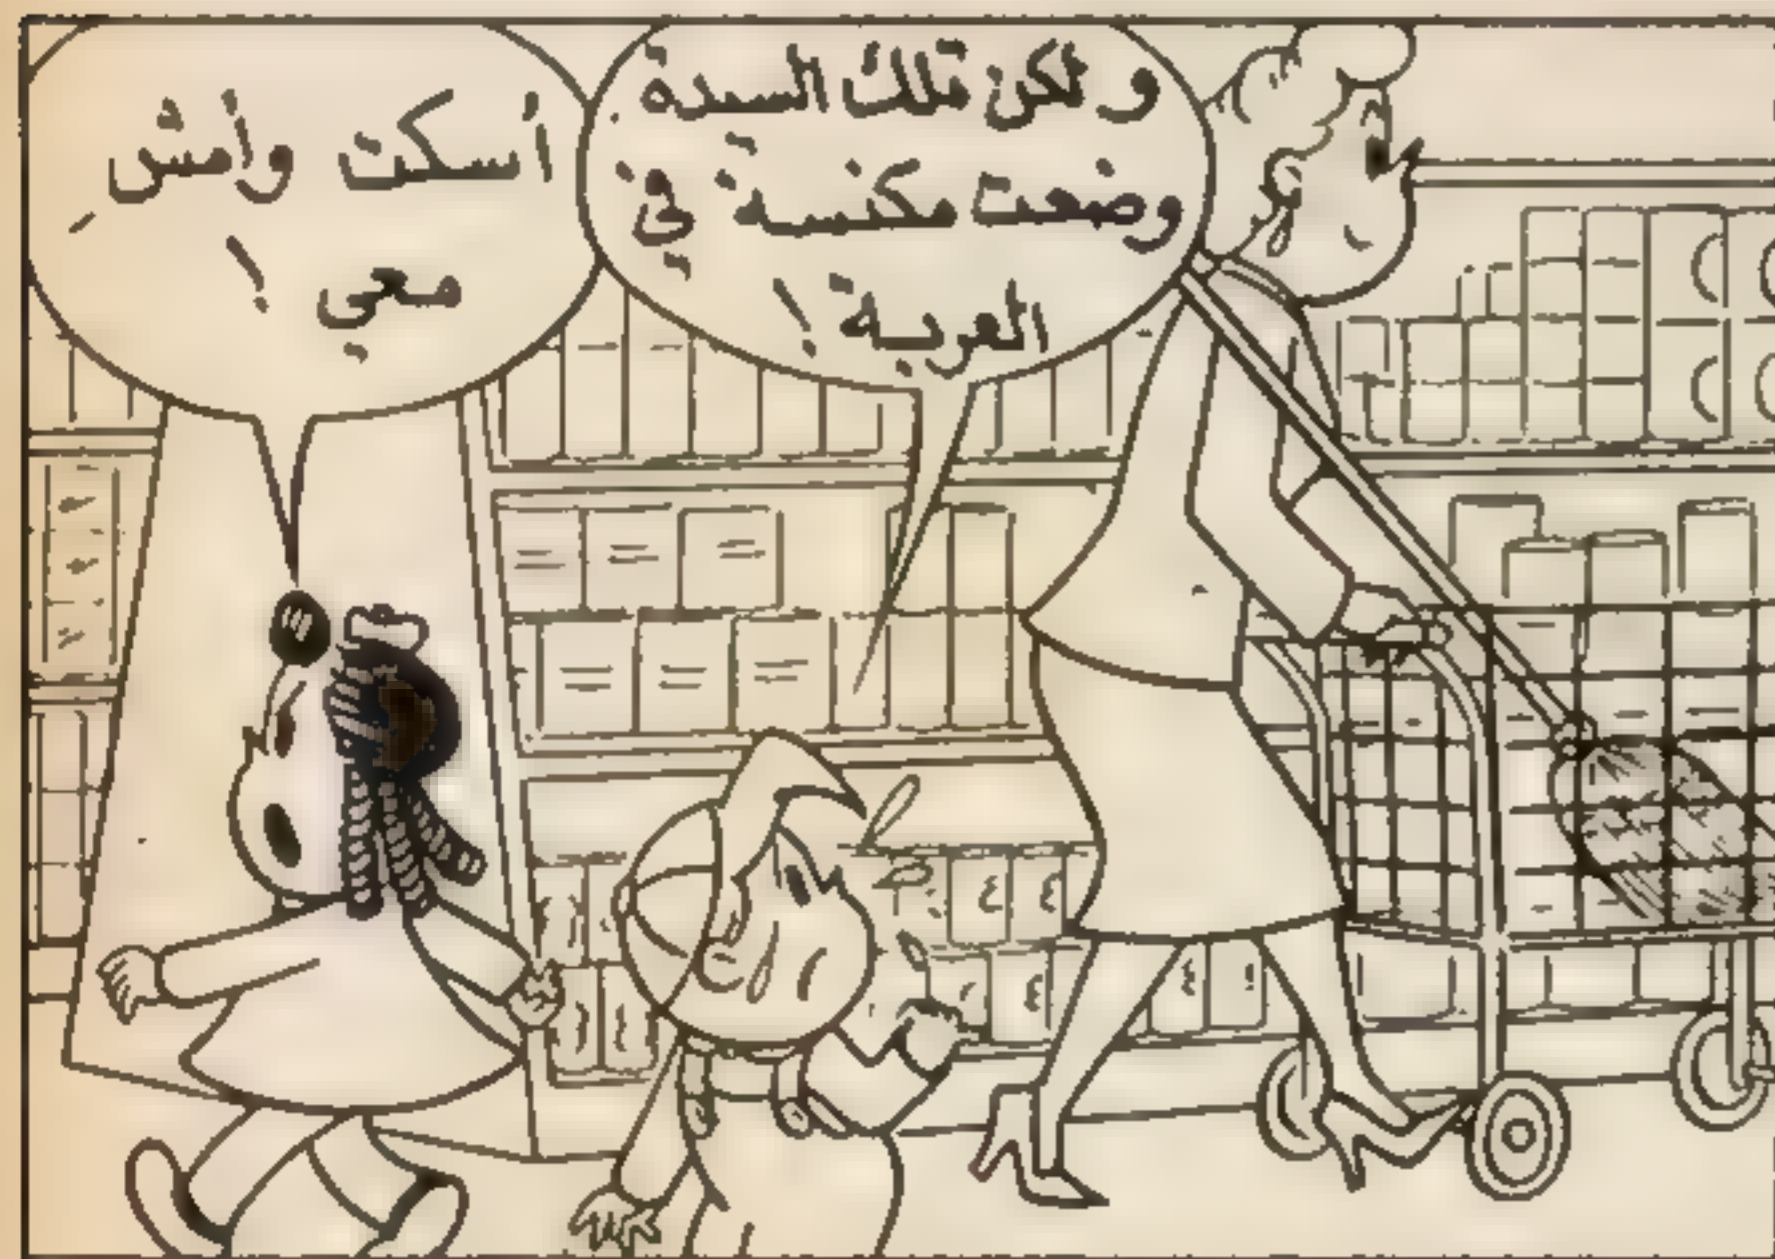 و لكن تلك السيدة
وضعت مكنسة في
العربة !
أسكت وأمش
معي !